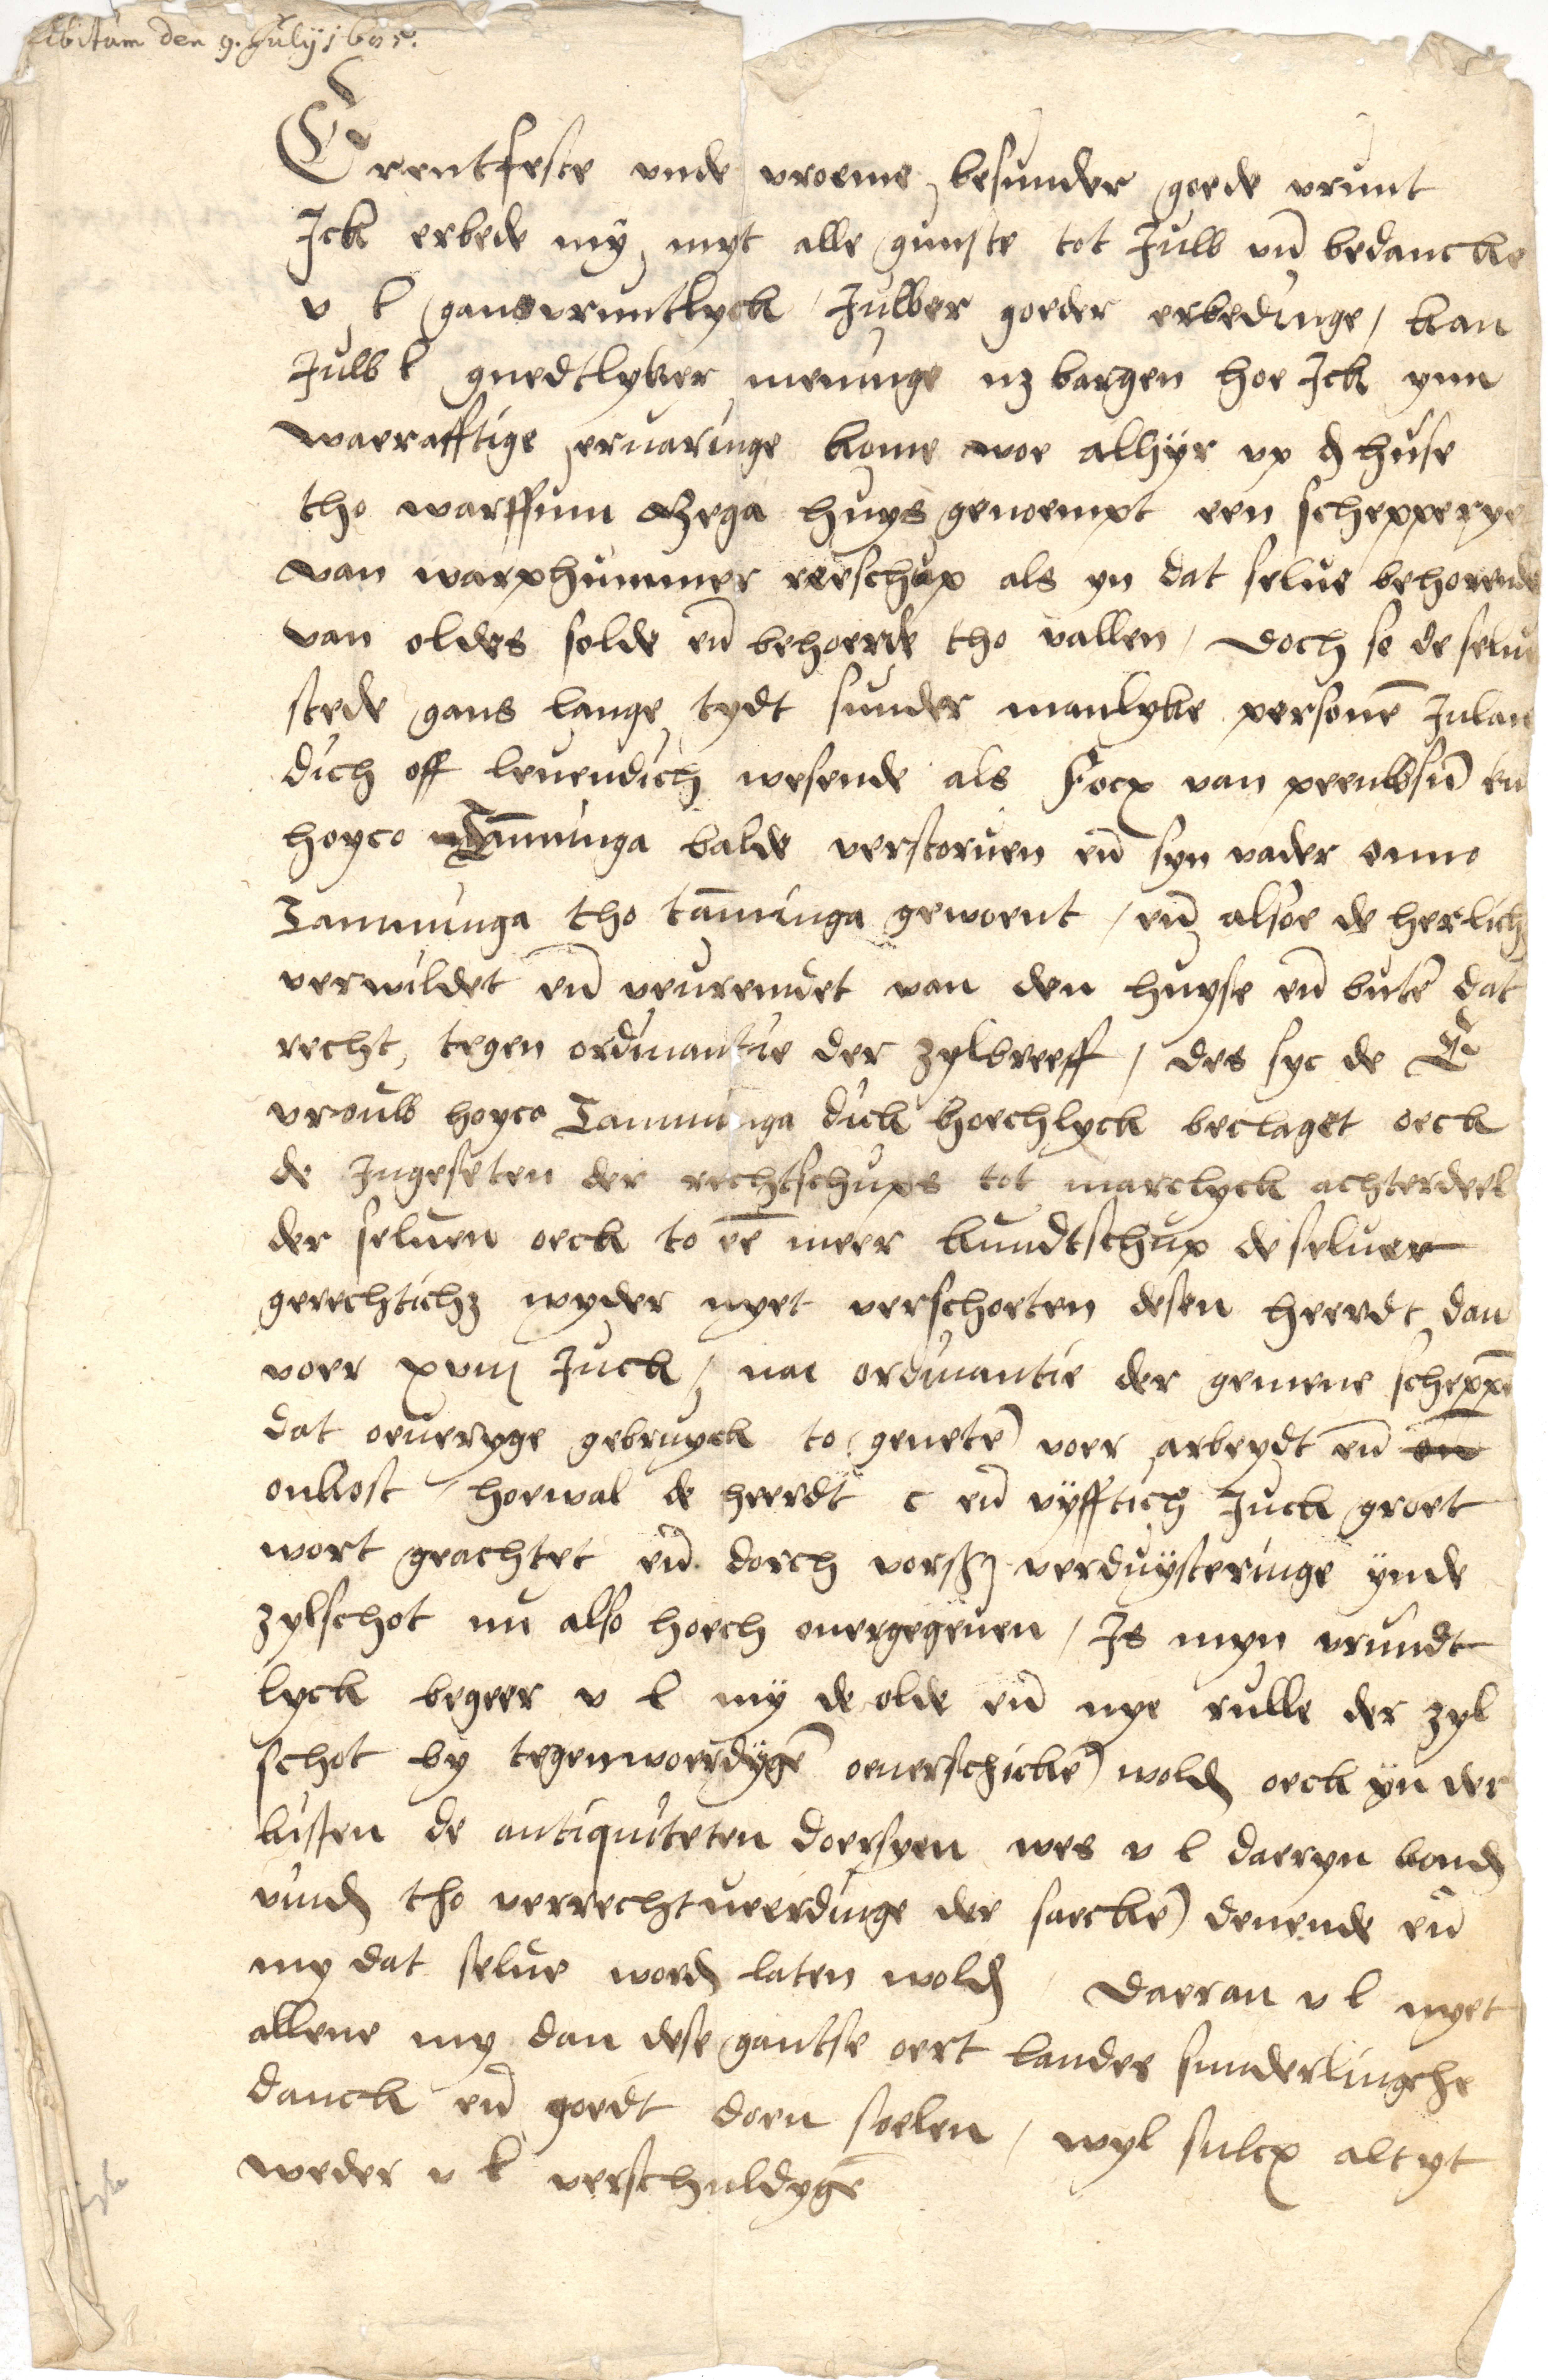 Exhibitum den 9. July 1605.
Erentfeste unde vroeme besunder goede vrunt
Ick erbede mÿ myt alle gunste tot Juw uñ bedancke
v l gans vruntlyck / Juwer goeder erbedinge / kan
Juw l guedtlyker meninge nz bargen hoe Ick ynn
waerafftige ervaringe kome woe alhÿr up d huse
tho warffum Bega huys genoempt een schepperye
van warphummer reeschup als yn dat selve behorende
van oldes solde eñ behoerde tho vallen / doch so de selve
stede gans lange tydt sunder manlyke personē Inlan
dich off levendich wesende als Focx van peewsū eñ
hoyco Tāminga balde verstorven eñ syn vader onno
Tamminga tho tāminga gewoent / eñ alsoe de herlichz
verwildet eñ veuremdet van den huyse eñ butē dat
recht, tegen ordinantie der zylbreeff / des syc de E
vrouw hoyco Tamminga dick hoechlyck beclaget oeck
de Ingeseten der rechtschups tot marclyck achterdeel
der selven oeck to eē meer kundtschup de selver
gerechtichz wyder nyet verschoeten desen heerdt dan
voer xviij Juck / nae ordinantie der gemene scheppē
dat overyge gebruyck to genetē voer arbeydt eñ
onkost / hoewal de heerdt c eñ vÿfftich Juck groet
wort geachtet eñ dorch vorsz verduÿsteringe ÿnde
zylschot nu also hoech overgegeven / Is myn vrundt
lyck begeer v l mÿ de olde eñ nye rulle der zyl
schot by tegenwoerdÿgē overschickē wold oeck ÿn der
kisten de antiquiteten doersyen wes v l daeryn kond
vind tho verrechtveerdinge der saeckē denende eñ
my dat selve word laten wold / Daeran v l nyet
allene my dan dese gantse oert landes sunderlingche
danck eñ goedt doen soelen / wyl sulcx altyt
weder v l verschuldygē